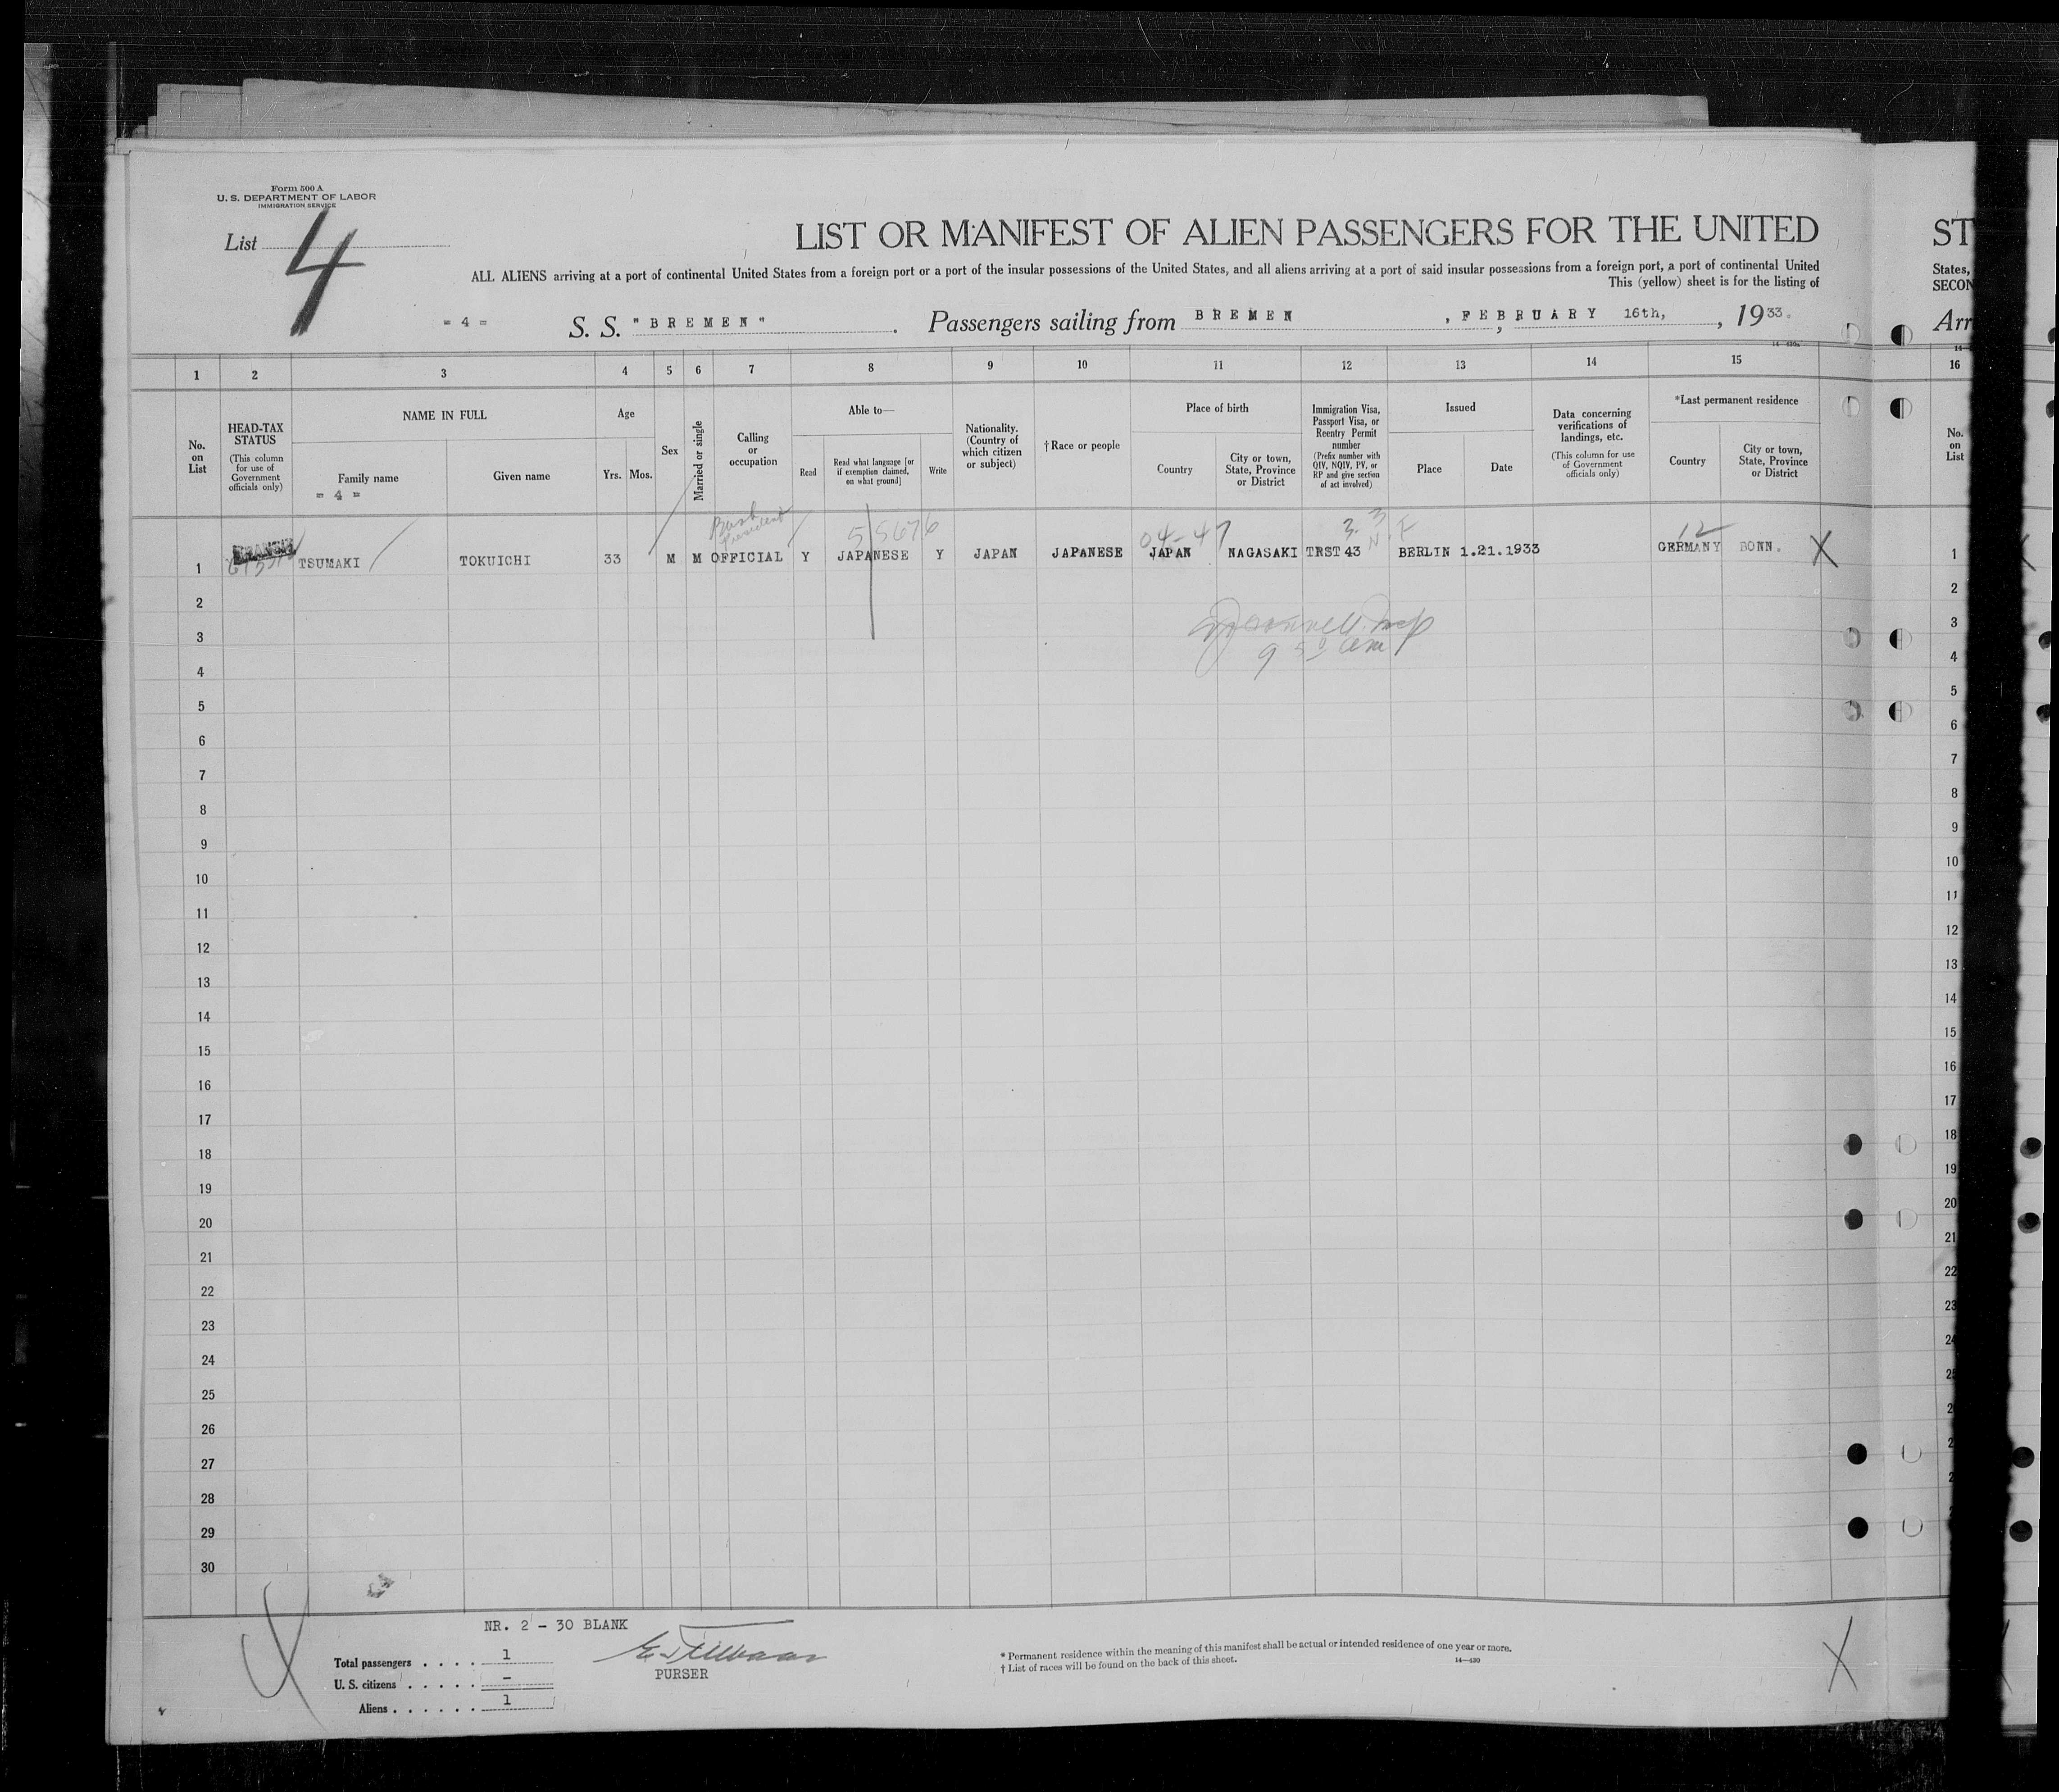 Form 500 A
U. S. DEPARTMENT OF LABOR
IMMIGRATION SERVICE
List 4
LIST OR MANIFEST OF ALIEN PASSENGERS FOR THE UNITED
ST
ALL ALIENS arriving at a port of continental United States from a foreign port or a port of the insular possessions of the United States, and all aliens arriving at a port of said insular possessions from a foreign port, a port of continental United
States,
This (yellow) sheet is for the listing of
SECON
= 4 = S. S. "BREMEN". Passengers sailing from BREMEN, FEBRUARY 16th, 1933.
Arr
1 2 3 4 5 6 7 8 9 10 11 12 13 14 15 16
No. on List
HEAD-TAX STATUS
(This column for use of Government officials only)
NAME IN FULL
Family name
= 4 =
Given name
Age
Yrs. Mos.
Sex
Married or single
Calling or occupation
Able to—
Read
Read what language [or if exemption claimed, on what ground]
Write
Nationality. (Country of which citizen or subject)
† Race or people
Place of birth
Country
City or town, State, Province or District
Immigration Visa, Passport Visa, or Reentry Permit number
(Prefix number with QIV, NQIV, PV, or RP and give section of act involved)
Issued
Place
Date
Data concerning verifications of landings, etc.
(This column for use of Government officials only)
*Last permanent residence
Country
City or town, State, Province or District
No. on List
55676 04-47 12
1 TSUMAKI TOKUICHI 33 M M OFFICIAL Y JAPANESE Y JAPAN JAPANESE JAPAN NAGASAKI TRST 43 BERLIN 1.21.1933 GERMANY BONN. X 1
2 2
3 3
4 4
5 5
6 6
7 7
8 8
9 9
10 10
11 11
12 12
13 13
14 14
15 15
16 16
17 17
18 18
19 19
20 20
21 21
22 22
23 23
24 24
25
26
27
28
29
30
NR. 2 - 30 BLANK
Total passengers . . . . 1
U. S. citizens . . . . . –
Aliens . . . . . . 1
PURSER
* Permanent residence within the meaning of this manifest shall be actual or intended residence of one year or more.
† List of races will be found on the back of this sheet.
14—430
X